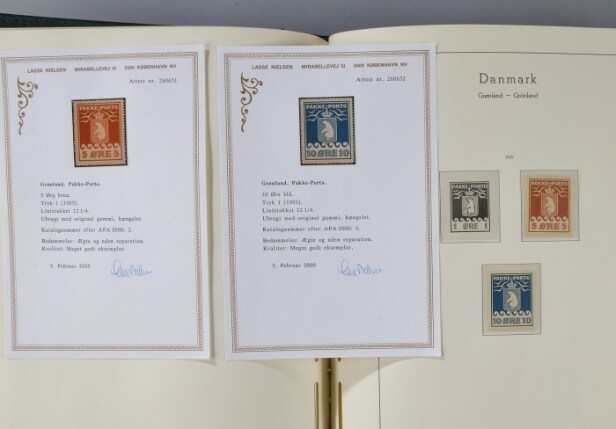 LASSE NIELSEN MIRABELLEVEJ 13 2400 KØBENHAVN NV
Attest nr. 260651
PAKKE-PORTO
5 ØRE 5
Grønland. Pakke-Porto.
5 Øre brun.
Tryk 1 (1905).
Linietakket 12 1/4.
Ubrugt med original gummi, hængslet.
Katalognummer efter AFA 2000: 2.
Bedømmelse: Ægte og uden reparation.
Kvalitet: Meget godt eksemplar.
5. Februar 2000
LASSE NIELSEN MIRABELLEVEJ 13 2400 KØBENHAVN NV
Attest nr. 260652
PAKKE-PORTO
10 ØRE 10
Grønland. Pakke-Porto.
10 Øre blå.
Tryk 1 (1905).
Linietakket 12 1/4.
Ubrugt med original gummi, hængslet.
Katalognummer efter AFA 2000: 3.
Bedømmelse: Ægte og uden reparation.
Kvalitet: Meget godt eksemplar.
5. Februar 2000
Danmark
Grønland — Grönland
PAKKE-PORTO
1 ØRE 1
PAKKE-PORTO
5 ØRE 5
PAKKE-PORTO
10 ØRE 10